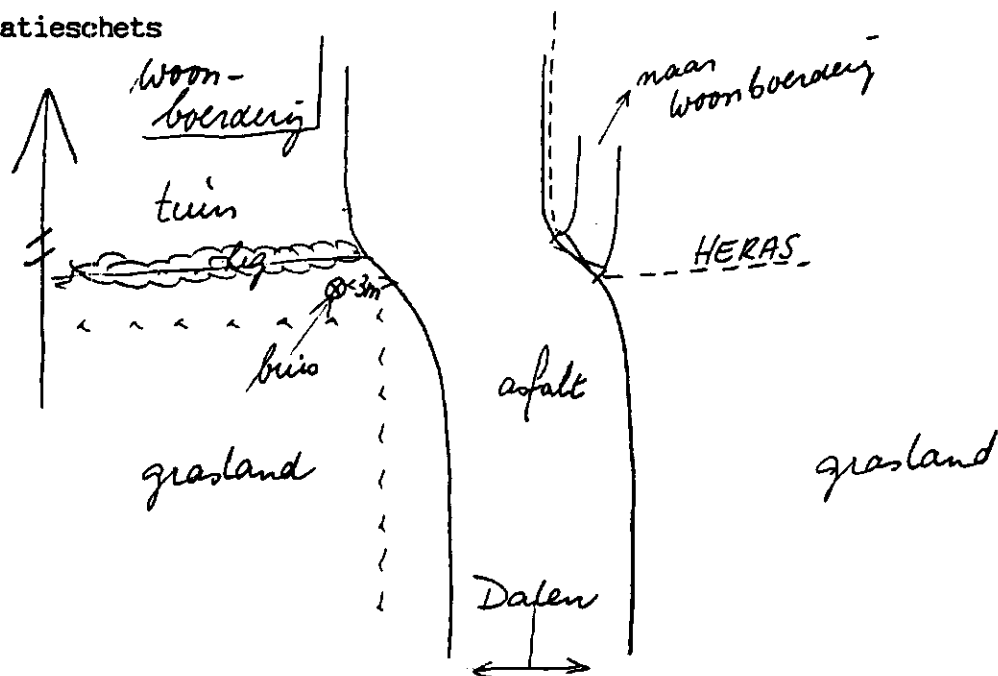 atieschets
woon-
boerderij
naar
woonboerderij
tuin
HERAS
3m
buis
asfalt
grasland
grasland
Dalen